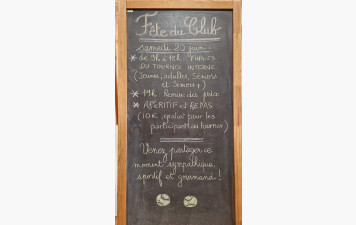 Fête du Club
samedi 25 juin
* de 9h à 18h FINALES
DU TOURNOI INTERNE
(Jeunes, adultes, Séniors
et Séniors+)
* 19h Remise des prix
* APERITIF et REPAS
(10€, gratuit pour les
participants au tournoi)
Venez partager ce
moment sympathique,
sportif et gourmand !